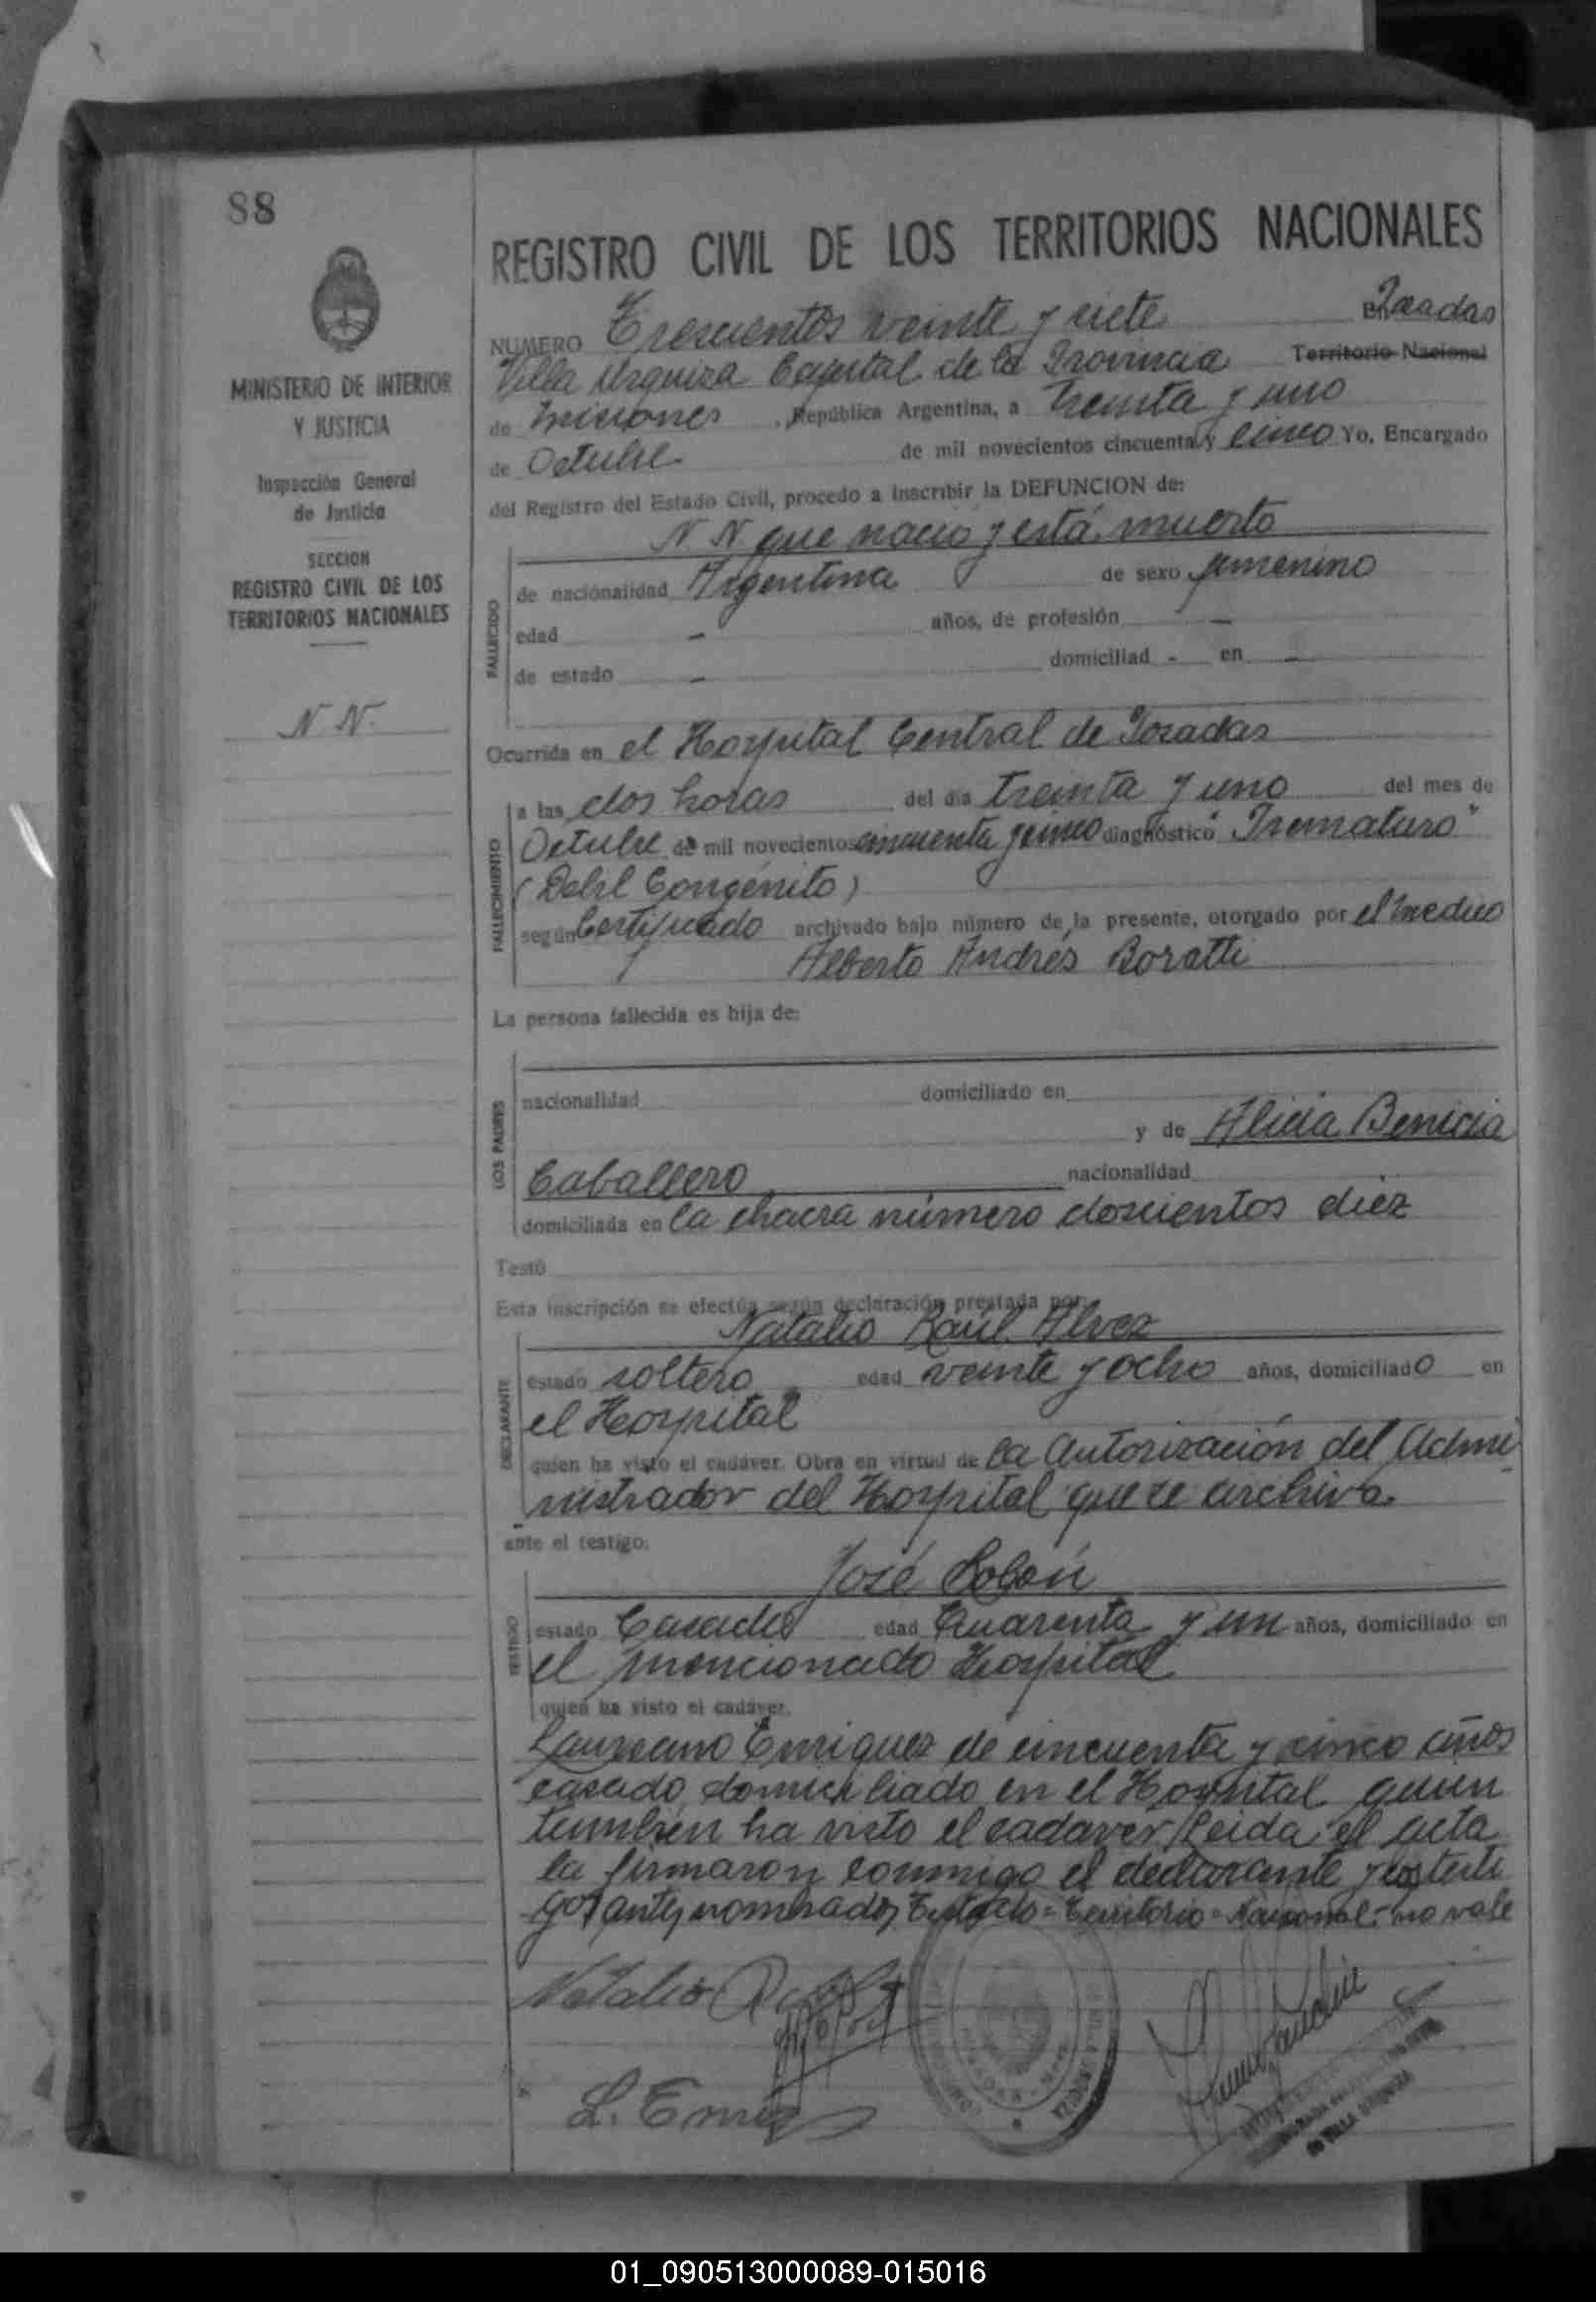 88
MINISTERIO DE INTERIOR
Y JUSTICIA
Inspección General
de Justicia
SECCION
REGISTRO CIVIL DE LOS
TERRITORIOS NACIONALES
N. N.
REGISTRO CIVIL DE LOS TERRITORIOS NACIONALES
NUMERO Trescientos veinte y siete En Posadas
Villa Urquiza Capital de la Provincia Territorio Nacional
de Misiones, República Argentina, a treinta y uno
de Octubre de mil novecientos cincuenta y cinco Yo, Encargado
del Registro del Estado Civil, procedo a inscribir la DEFUNCION de:
N. N. que nació y está muerto
FALLECIDO
de nacionalidad Argentina de sexo femenino
edad - años, de profesión -
de estado - domiciliad - en -
Ocurrida en el Hospital Central de Posadas
FALLECIMIENTO
a las dos horas del día treinta y uno del mes de
Octubre de mil novecientos cincuenta y cinco diagnóstico "Prematuro"
(Debil Congénito)
según Certificado archivado bajo número de la presente, otorgado por el medico
Alberto Andrés Boratti
La persona fallecida es hija de:
LOS PADRES
nacionalidad domiciliado en
y de Alicia Benicia
Caballero nacionalidad
domiciliada en la chacra número doscientos diez
Testó
Esta inscripción se efectúa según declaración prestada por:
Natalio Raúl Alvez
DECLARANTE
estado soltero edad veinte y ocho años, domiciliado en
el Hospital
quien ha visto el cadáver. Obra en virtud de la autorización del Admi
nistrador del Hospital que se archiva.
ante el testigo:
José
TESTIGO
estado Casado edad Cuarenta y un años, domiciliado en
el mencionado Hospital
quien ha visto el cadáver.
Laureano Enriquez de cincuenta y cinco años
casado domiciliado en el Hospital quien
tambien ha visto el cadaver. Leida el acta
la firmaron conmigo el declarante y los testi
gos antes nombrados Testado = Territorio = Nacional = no vale
Natalio
L. Enriquez
VILLA URQUIZA
de VILLA URQUIZA
01_090513000089-015016